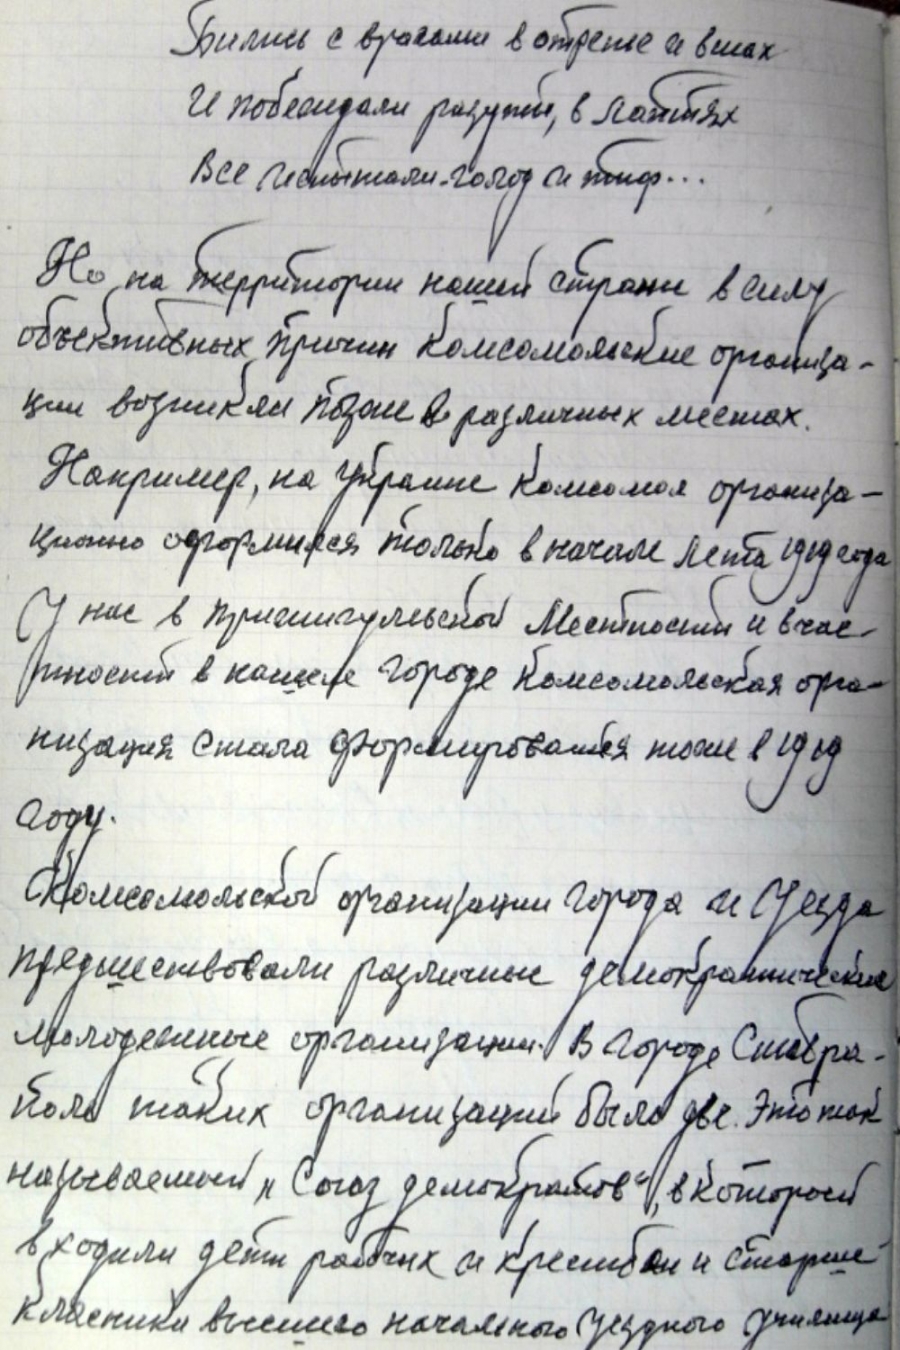 Бились с врагами в отрепье и вшах
И побеждали разутые, в лаптях
Все испытали - голод и тиф...
Но на территории нашей страны в силу
объективных причин комсомольские организа-
ции возникли позже в различных местах.
Например, на Украине комсомол организа-
ционно оформился только в начале лета 1919 года
У нас в местности и в час-
тности в нашем городе комсомольская орга-
низация стала формироваться тоже в 1919
году.
Комсомольской организации города и уезда
предшествовали различные демократические
молодежные организации. В городе Ставро-
поле таких организаций было две. Это так
называемый "Союз демократов", в которой
входили дети рабочих и крестьян и старше-
классники высшего начального уездного училища